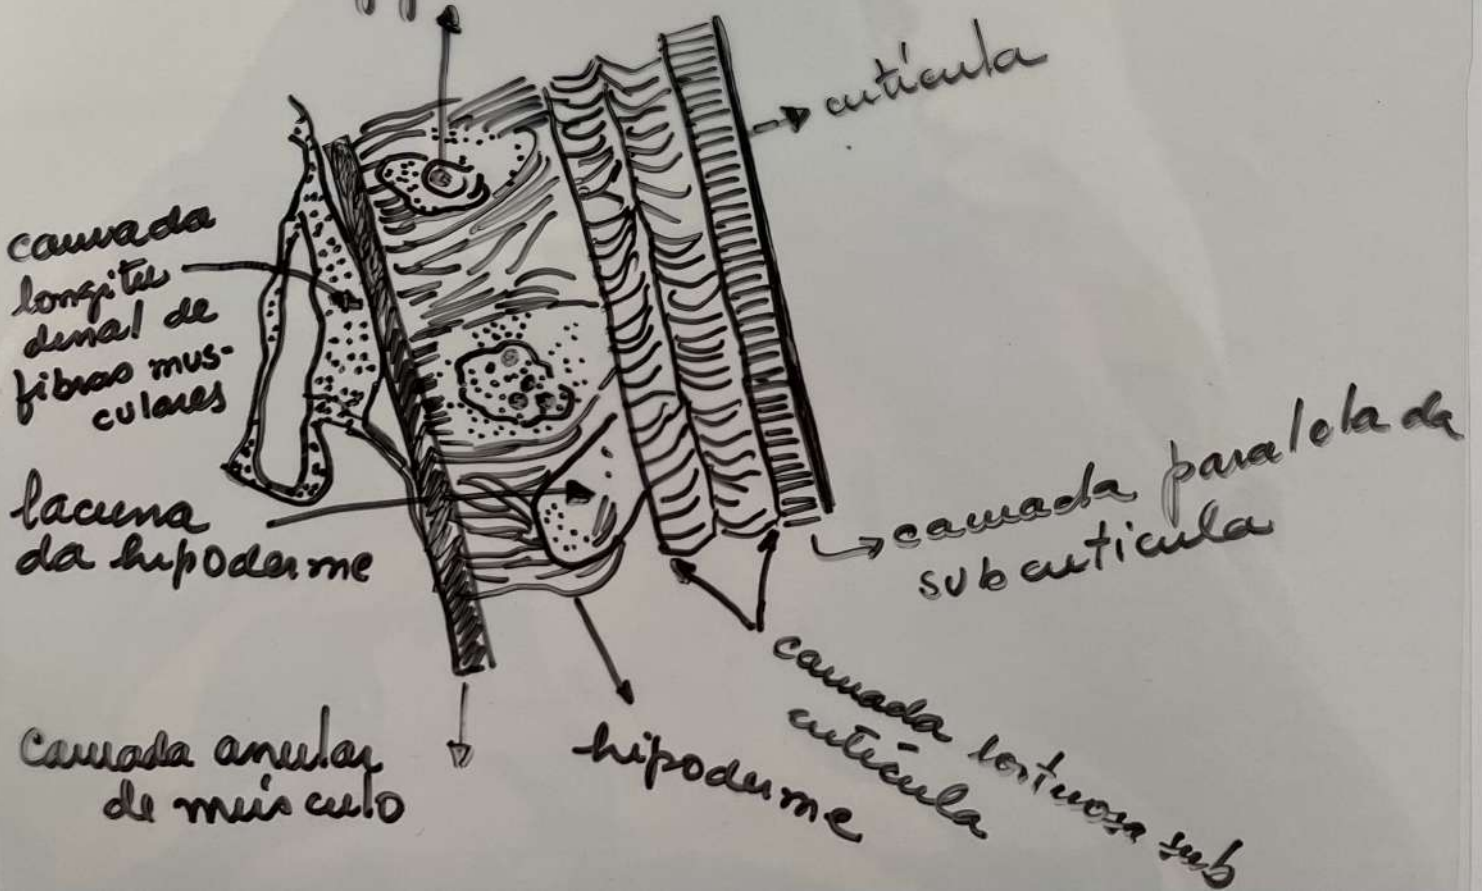 cutícula
camada
longitu
dinal de
fibras mus-
culares
lacuna
da hipoderme
camada paralela da
subcutícula
camada tortuosa sub
cutícula
hipoderme
Camada anular
de músculo